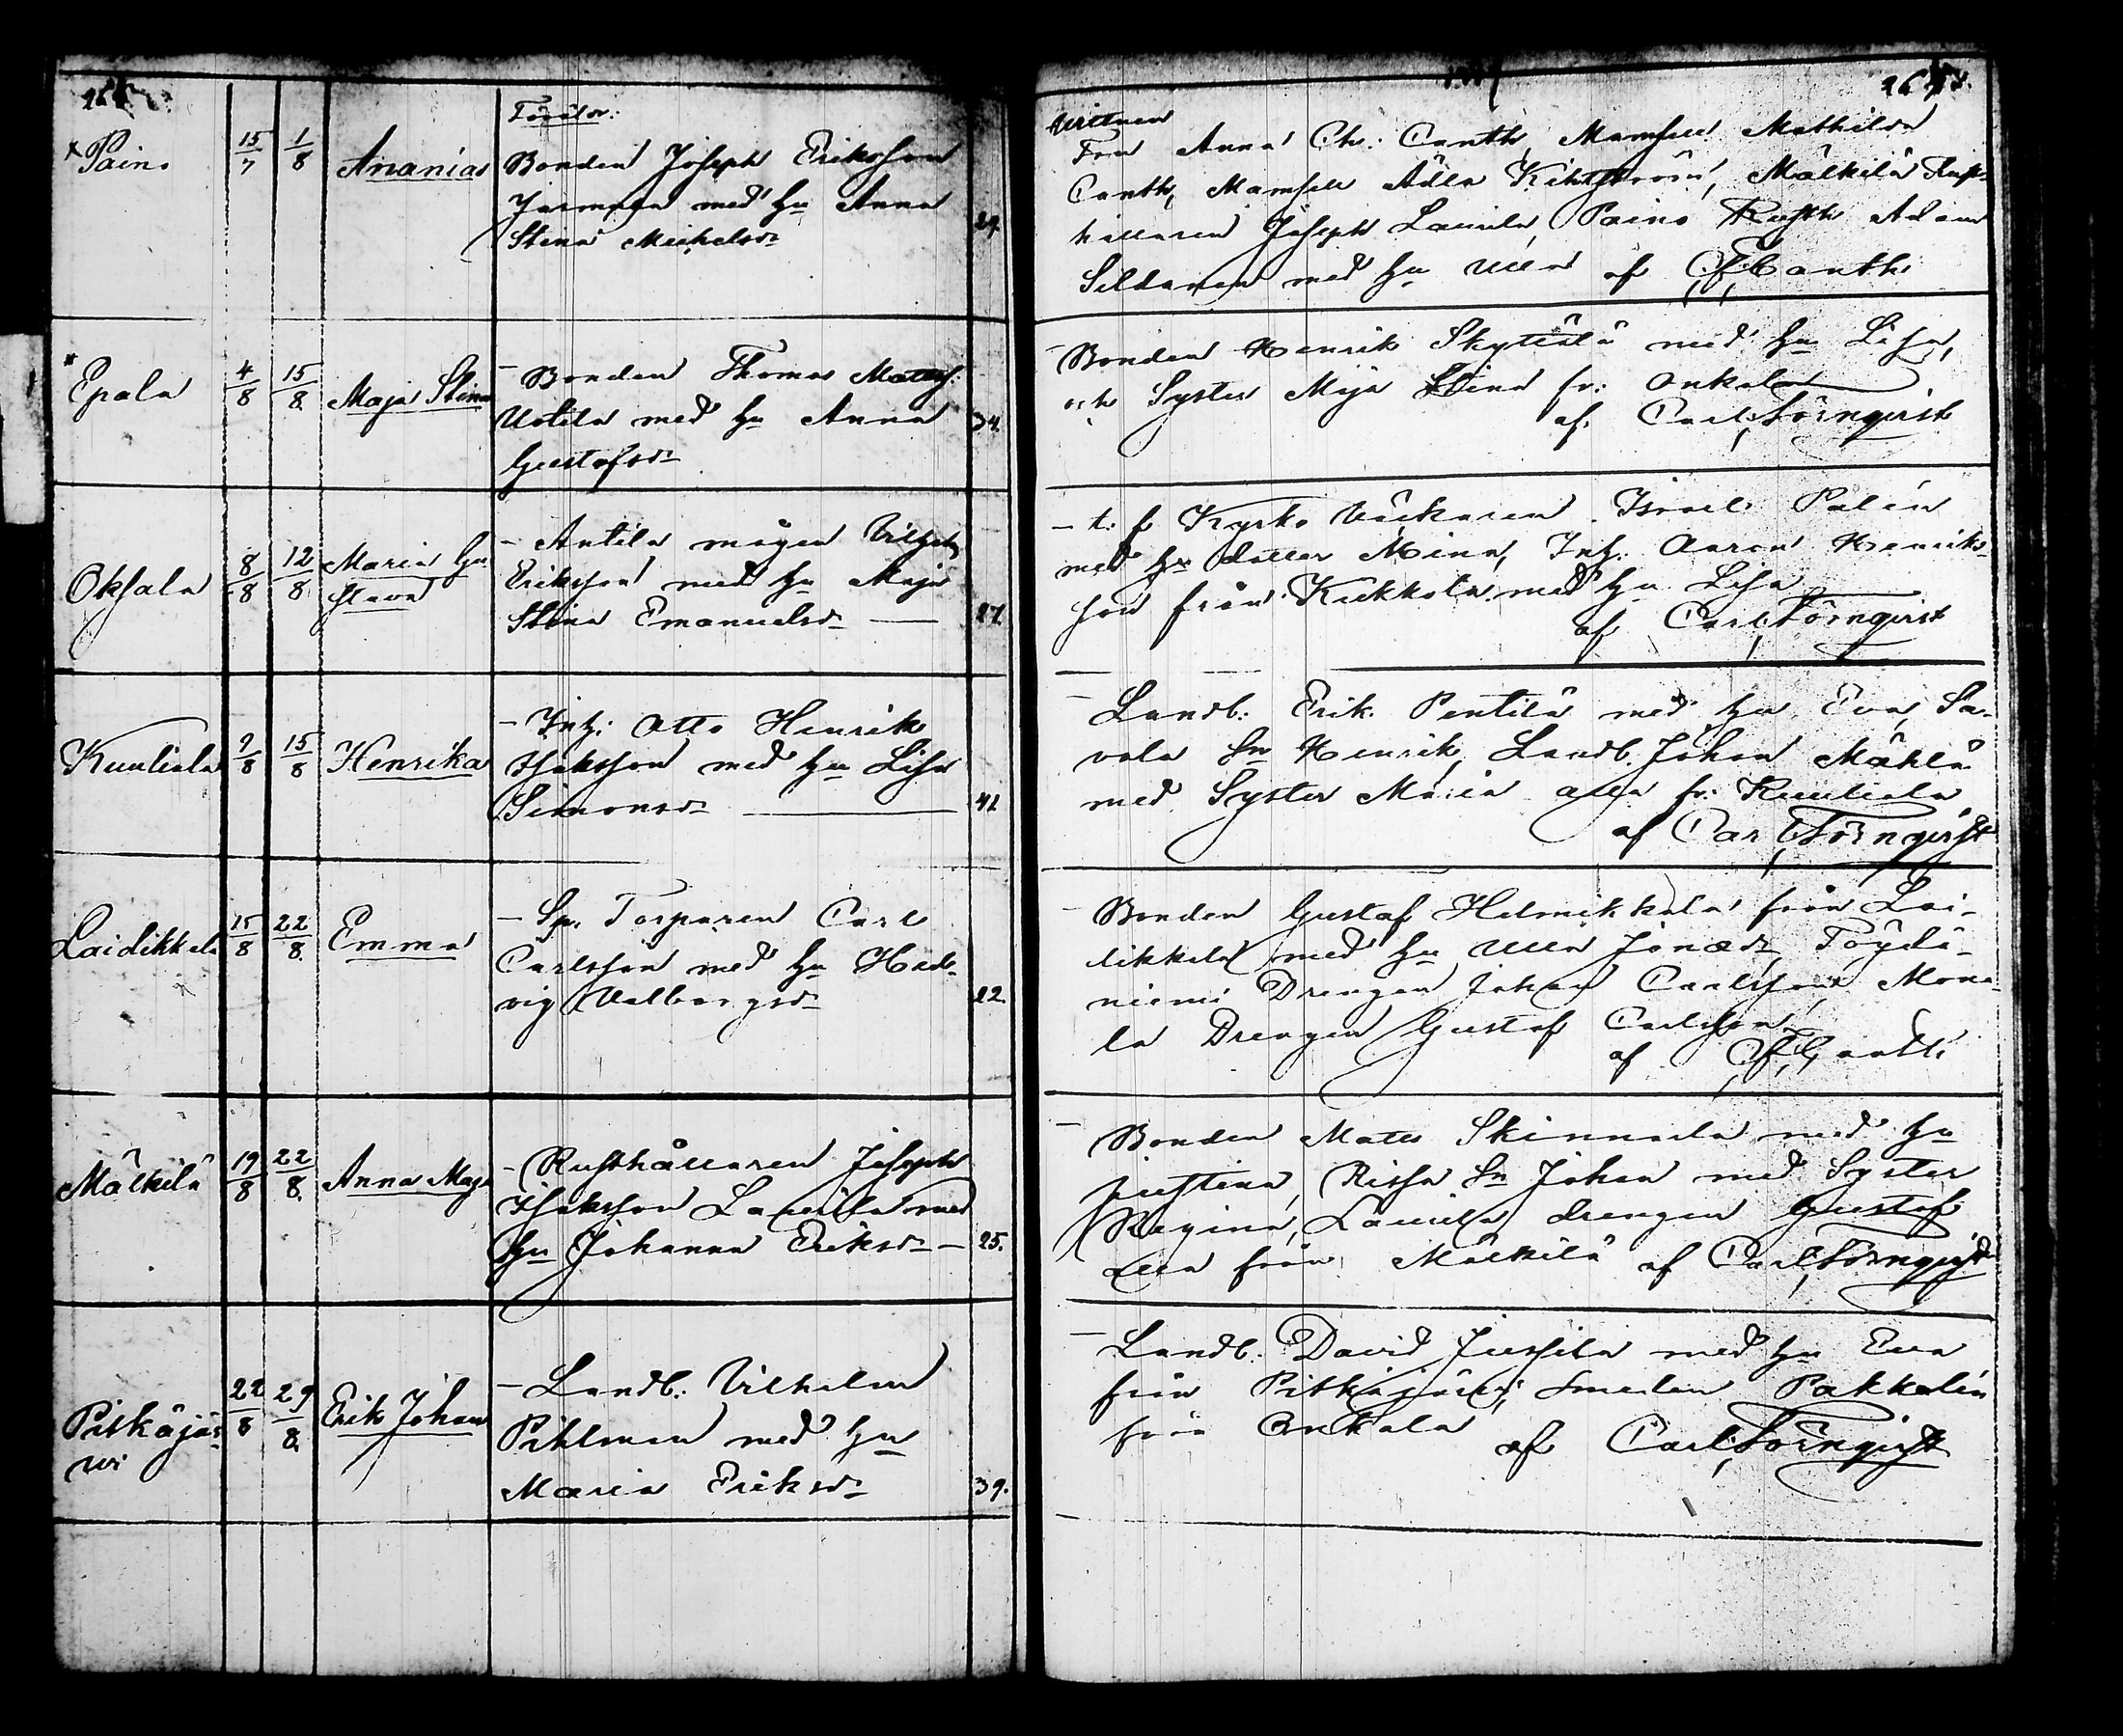 Föräldr:
Paino 15/7 1/8 Ananias Bonden Joseph Eriksson
med Hu Anna
Stina Michelsdr
Epala 4/8 15/8 Maja Stina Bonden Thomas Matts:
Uotila med Hu Anna 34.
Gustafsdr
Oksala 8/8 12/8 Maria Gu
stava
Antila mågen Vilhelm
Eriksson med Hu Maja
Stina Emanuelsdr 27.
Kuuliala 9/8 15/8 Henrika Inh: Otto Henrik
Isaksson med Hu Lisa
Simonsdr 41
Laidikkala 15/8 22/8 Emma Sp. Torparen Carl
Carlsson med Hu Hed-
vig Valborgsdr
Mälkilä 19/8 22/8 Anna Maja Rusthållaren Joseph
Isaksson Laurila med
Hu Johanna Eriksdr 25.
Pitkäjär-
wi
22/8 29/8 Erik Johan Landb: Vilhelm
Pihlman med Hu
Maria Eriksdr 39.
Vittnen
Fru Anna Ch: Canth, Mamsell Mathilda
Canth, Mamsell Mälkilä Rust-
hållaren Joseph Laurila, Paino Rusth Adam
med Hu Ulla af Canth
Bonden Henrik Skyttälä med Hu Lisa,
och Syster Maja Stina fr: Onkala
af Carl Törnqvist
t. f Kyrko Väktaren Israel Palén
med Hu dotter Mina, Inh: Aaron Henriks-
son från Kukkola med Hu Lisa
af Carl Törnqvist
Landb: Erik Pentilä med Hu Eva, Sa-
vola Sn Henrik, Landb. Johan Mäkilä
med Syster Maria alla fr: Kuuliala
af Carl Törnqvist
Bonden Gustaf Helmikkala från Lai-
dikkala med Hu Ulla Jonædr, Töydä-
niemi Drengen Johan Carlsson, Mona-
la Drengen Gustaf Carlsson,
af Canth
Bonden Matts Skinnarla med Hu
Justina, Rissa Sn Johan med Syster
Regina, Laurila drengen Gustaf
alla från Mälkilä af Carl Törnqvist
Landb: David Jussila med Hu Eva
från Pitkäjärvi, Smeden Pakkalén
från Onkala af Carl Törnqvist